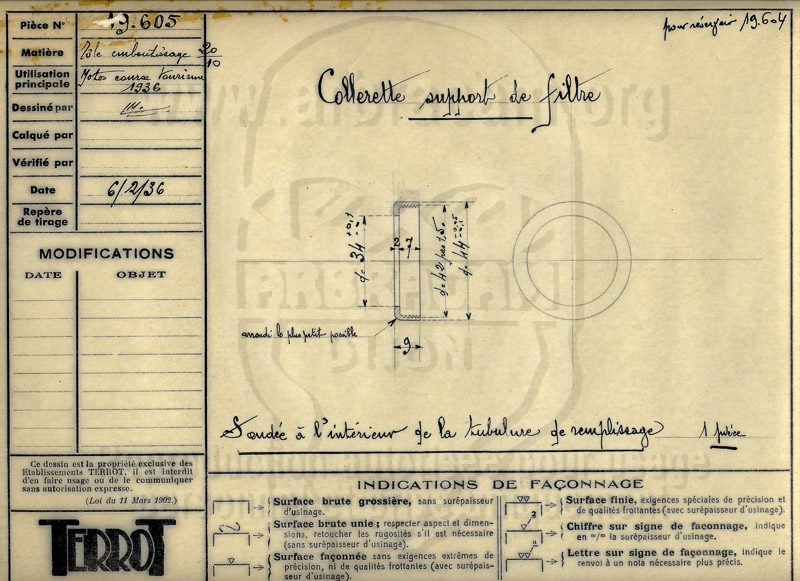 Pièce N° 19.605
pour réservoir 19.604
Matière Tôle emboutissage 20/10
Utilisation principale Motos course tourisme 1936
Dessiné par
Calqué par
Vérifié par
Date 6/2/36
Repère de tirage
MODIFICATIONS
DATE OBJET
Collerette support de filtre
2 7
d= 34
d= 42 pas 1,5
d= 44
9
arrondi le plus petit possible
Soudée à l'intérieur de la tubulure de remplissage 1 pièce
Ce dessin est la propriété exclusive des
Etablissements TERROT, il est interdit
d'en faire usage ou de le communiquer
sans autorisation expresse.
(Loi du 11 Mars 1902.)
TERROT
INDICATIONS DE FAÇONNAGE
Surface brute grossière, sans surépaisseur
d'usinage.
Surface brute unie; respecter aspect et dimen-
sions, retoucher les rugosités s'il est nécessaire
(sans surépaisseur d'usinage).
Surface façonnée sans exigences extrêmes de
précision, ni de qualités frottantes (avec surépais-
seur d'usinage).
Surface finie, exigences spéciales de précision et
de qualités frottantes (avec surépaisseur d'usinage).
Chiffre sur signe de façonnage, indique
en m/m la surépaisseur d'usinage.
Lettre sur signe de façonnage, indique le
renvoi à un nota nécessaire plus précis.